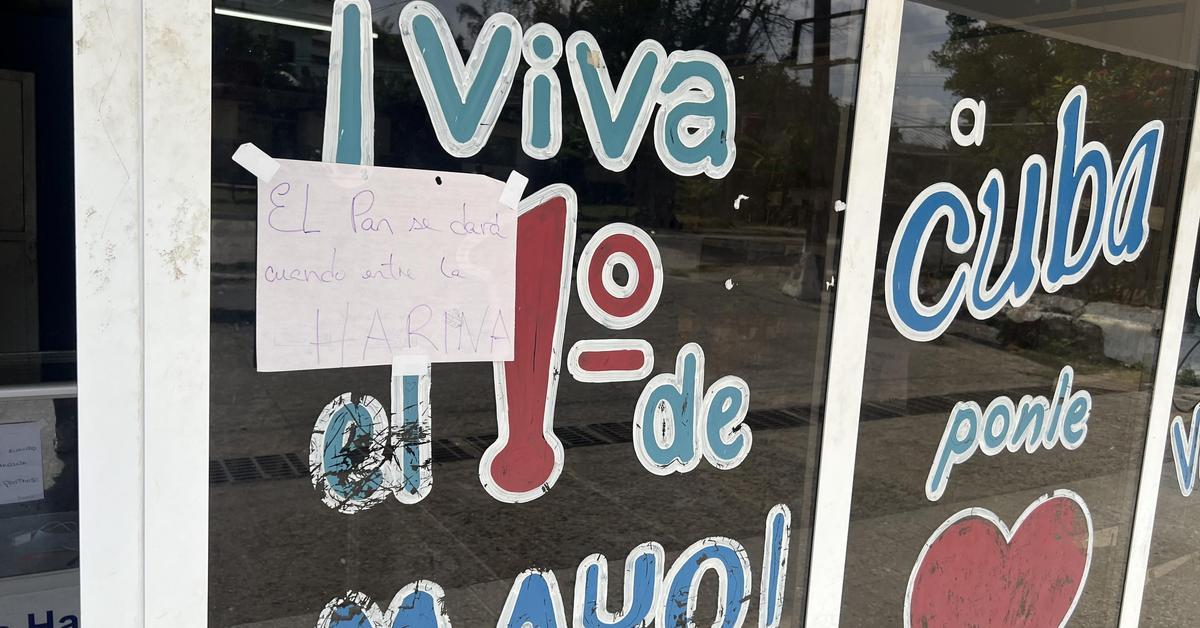 ¡Viva
EL Pan se dará
cuando entre la
HARINA
el 1º de
MAYO!
a
Cuba
ponle